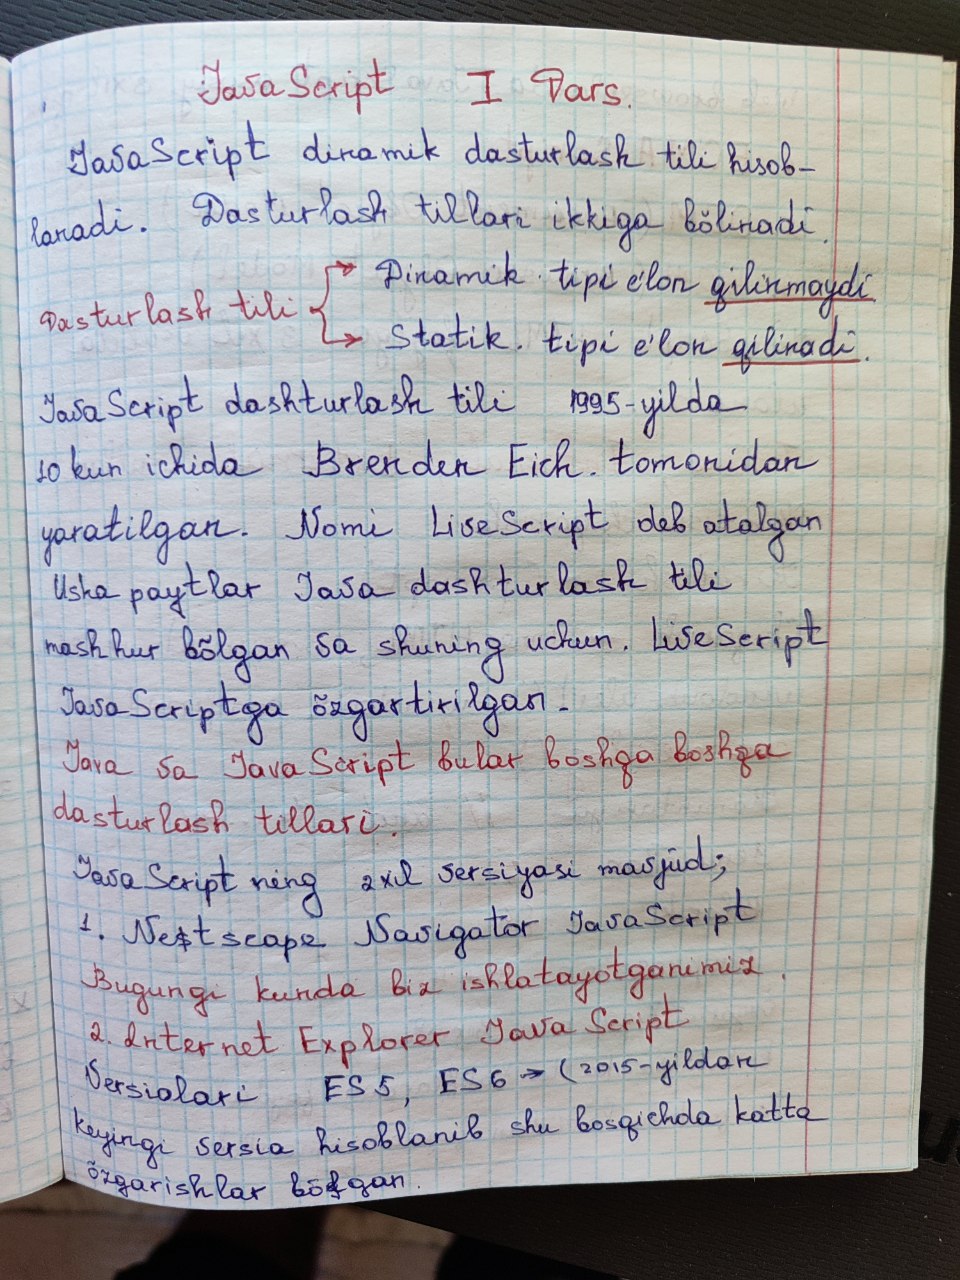 JavaScript I Dars.
JavaScript dinamik dasturlash tili hisob-
lanadi. Dasturlash tillari ikkiga bõlinadi.
Dinamik. tipi e'lon qilinmaydi
Dasturlash tili
Statik. tipi e'lon qilinadi.
JavaScript dashturlash tili 1995-yilda
10 kun ichida Brenden Eich. tomonidan
yaratilgan. Nomi LiveScript deb atalgan
Usha paytlar Java dashturlash tili
mashhur bõlgan va shuning uchun. LiveScript
JavaScriptga õzgartirilgan.
Java va JavaScript bular boshqa boshqa
dasturlash tillari.
JavaScript ning 2 xil versiyasi mavjud;
1. Netscape Navigator JavaScript
Bugungi kunda biz ishlatayotganimiz.
2. Internet Explorer JavaScript
Versialari ES5, ES6 → (2015-yildan
keyingi versia hisoblanib shu bosqichda katta
õzgarishlar bõlgan.